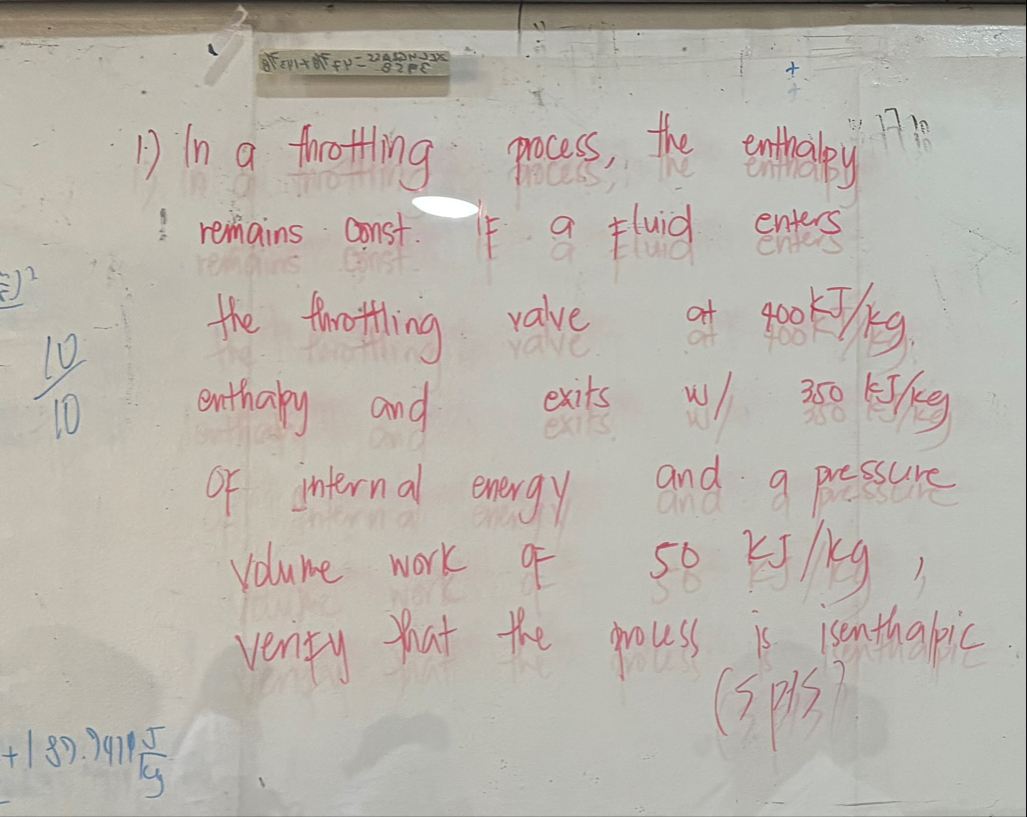 1.) In a throttling process, the enthalpy
remains const. If a fluid enters
the throttling valve at 400 kJ/kg.
enthalpy and exits w/ 350 kJ/kg
of internal energy and a pressure
volume work of 50 kJ/kg,
verify that the process is isenthalpic.
(5 pts)
10
10